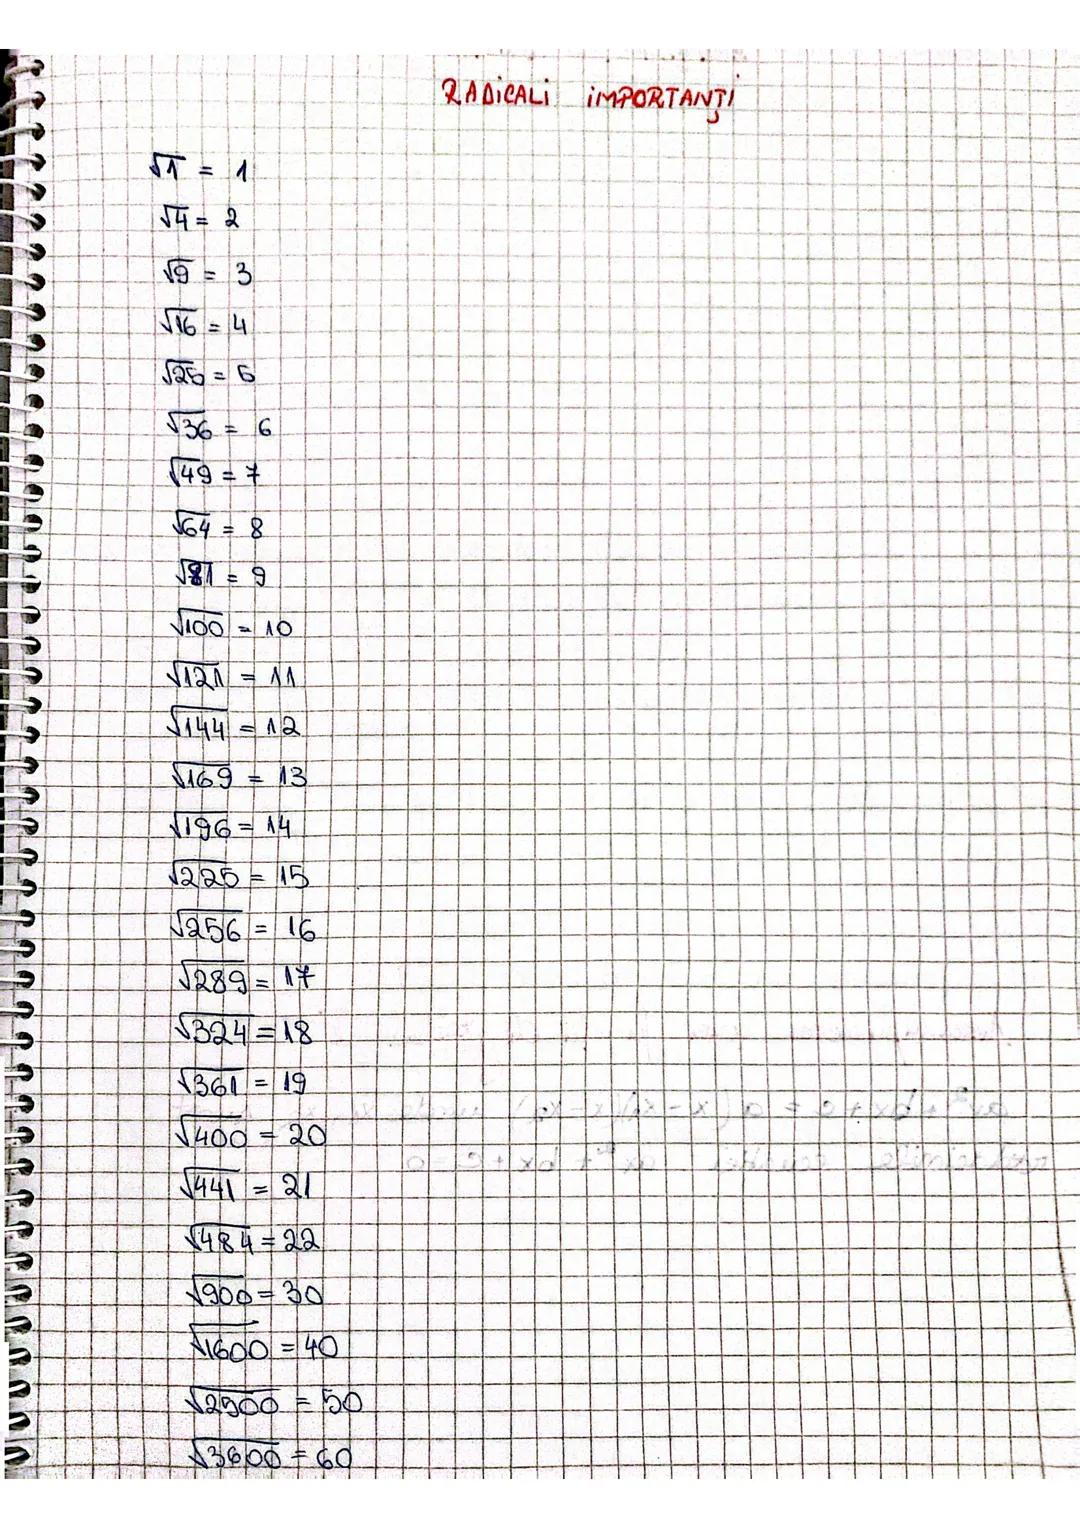 RADICALI IMPORTANȚI
√1 = 1
√4 = 2
√9 = 3
√16 = 4
√25 = 5
√36 = 6
√49 = 7
√64 = 8
√81 = 9
√100 = 10
√121 = 11
√144 = 12
√169 = 13
√196 = 14
√225 = 15
√256 = 16
√289 = 17
√324 = 18
√361 = 19
√400 = 20
√441 = 21
√484 = 22
√900 = 30
√1600 = 40
√2500 = 50
√3600 = 60